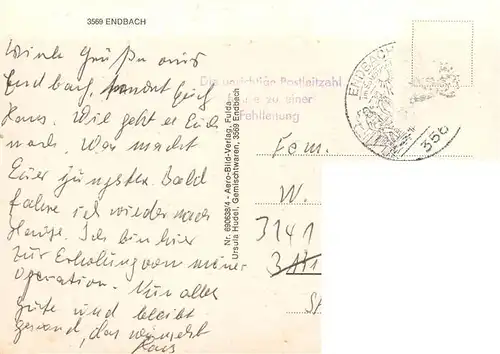 3569 ENDBACH
Viele Grüße aus
Endbach, sendet Euch
Hans. Wie geht es Euch
noch. Was macht
Euer jüngster. Bald
fahre ich wieder nach
Hause. Ich bin hier
zur Erholung von meiner
Operation. Nun alles
Gute und bleibt
gesund, das wünscht
Hans
Nr. 690638/4 - Aero-Bild-Verlag, Fulda
Ursula Hudel, Gemischtwaren, 3569 Endbach
Die unrichtige Postleitzahl
zu einer
Fehlleitung
ENDBACH
356
Fam.
W.
3141
St